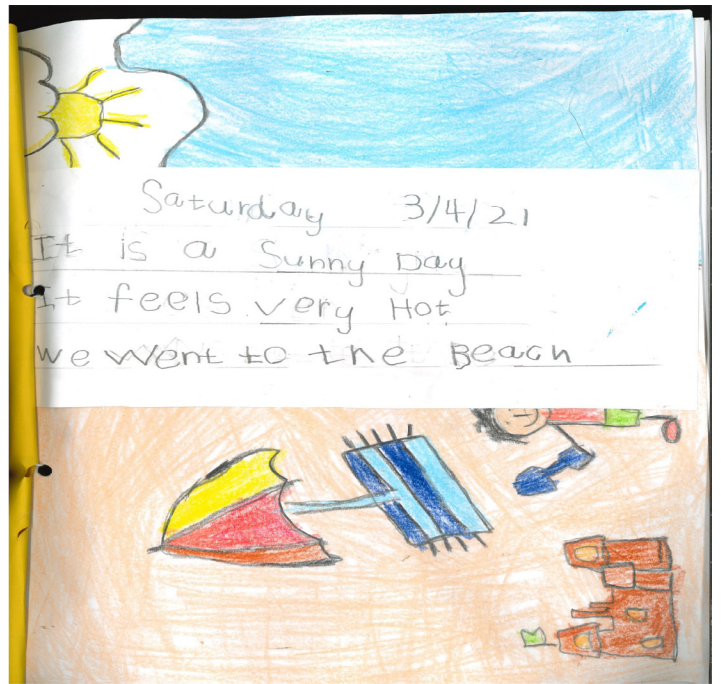 Saturday 3/4/21
It is a Sunny Day
It feels very Hot
we went to the Beach